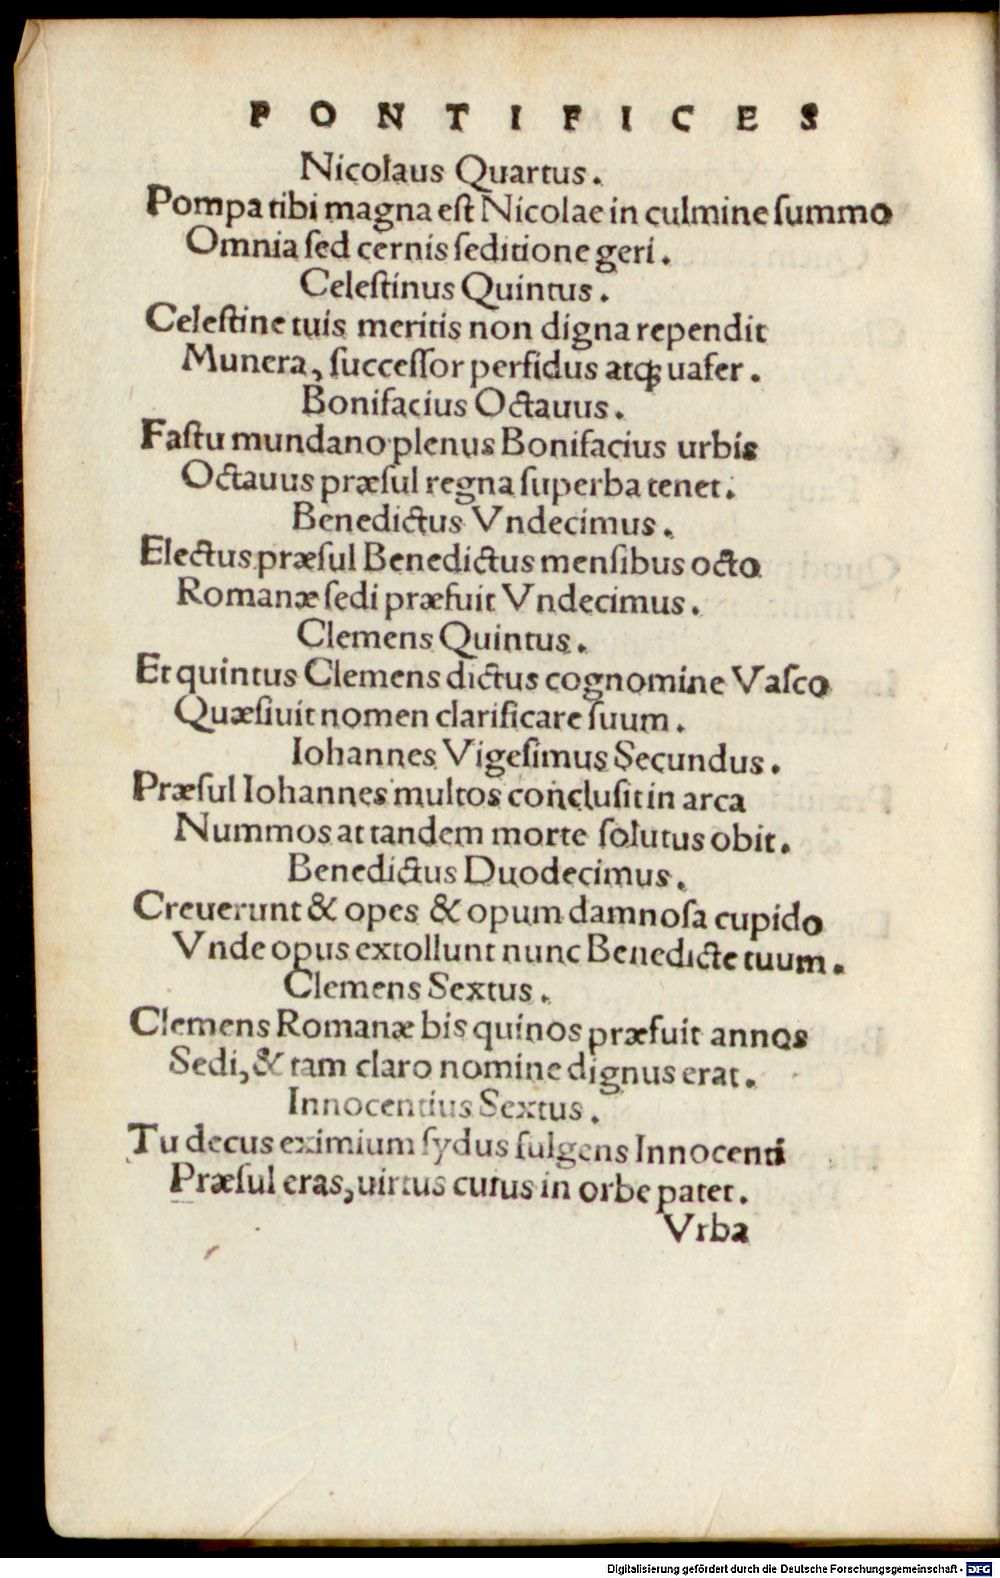 PONTIFICES
Nicolaus Quartus.
Pompa tibi magna est Nicolae in culmine ſummo
Omnia ſed cernis ſeditione geri.
Celeſtinus Quintus.
Celeſtine tuis meritis non digna rependit
Munera, ſucceſſor perfidus atq; uafer.
Bonifacius Octauus.
Faſtu mundano plenus Bonifacius urbis
Octauus præſul regna ſuperba tenet.
Benedictus Vndecimus.
Electus præſul Benedictus menſibus octo
Romanæ ſedi præfuit Vndecimus.
Clemens Quintus.
Et quintus Clemens dictus cognomine Vaſco
Quæſiuit nomen clarificare ſuum.
Iohannes Vigeſimus Secundus.
Præſul Iohannes multos concluſit in arca
Nummos at tandem morte ſolutus obit.
Benedictus Duodecimus.
Creuerunt & opes & opum damnoſa cupido
Vnde opus extollunt nunc Benedicte tuum.
Clemens Sextus.
Clemens Romanæ bis quinos præfuit annos
Sedi, & tam claro nomine dignus erat.
Innocentius Sextus.
Tu decus eximium ſydus fulgens Innocenti
Præſul eras, uirtus cuius in orbe patet.
Vrba
Digitalisierung gefördert durch die Deutsche Forschungsgemeinschaft - DFG